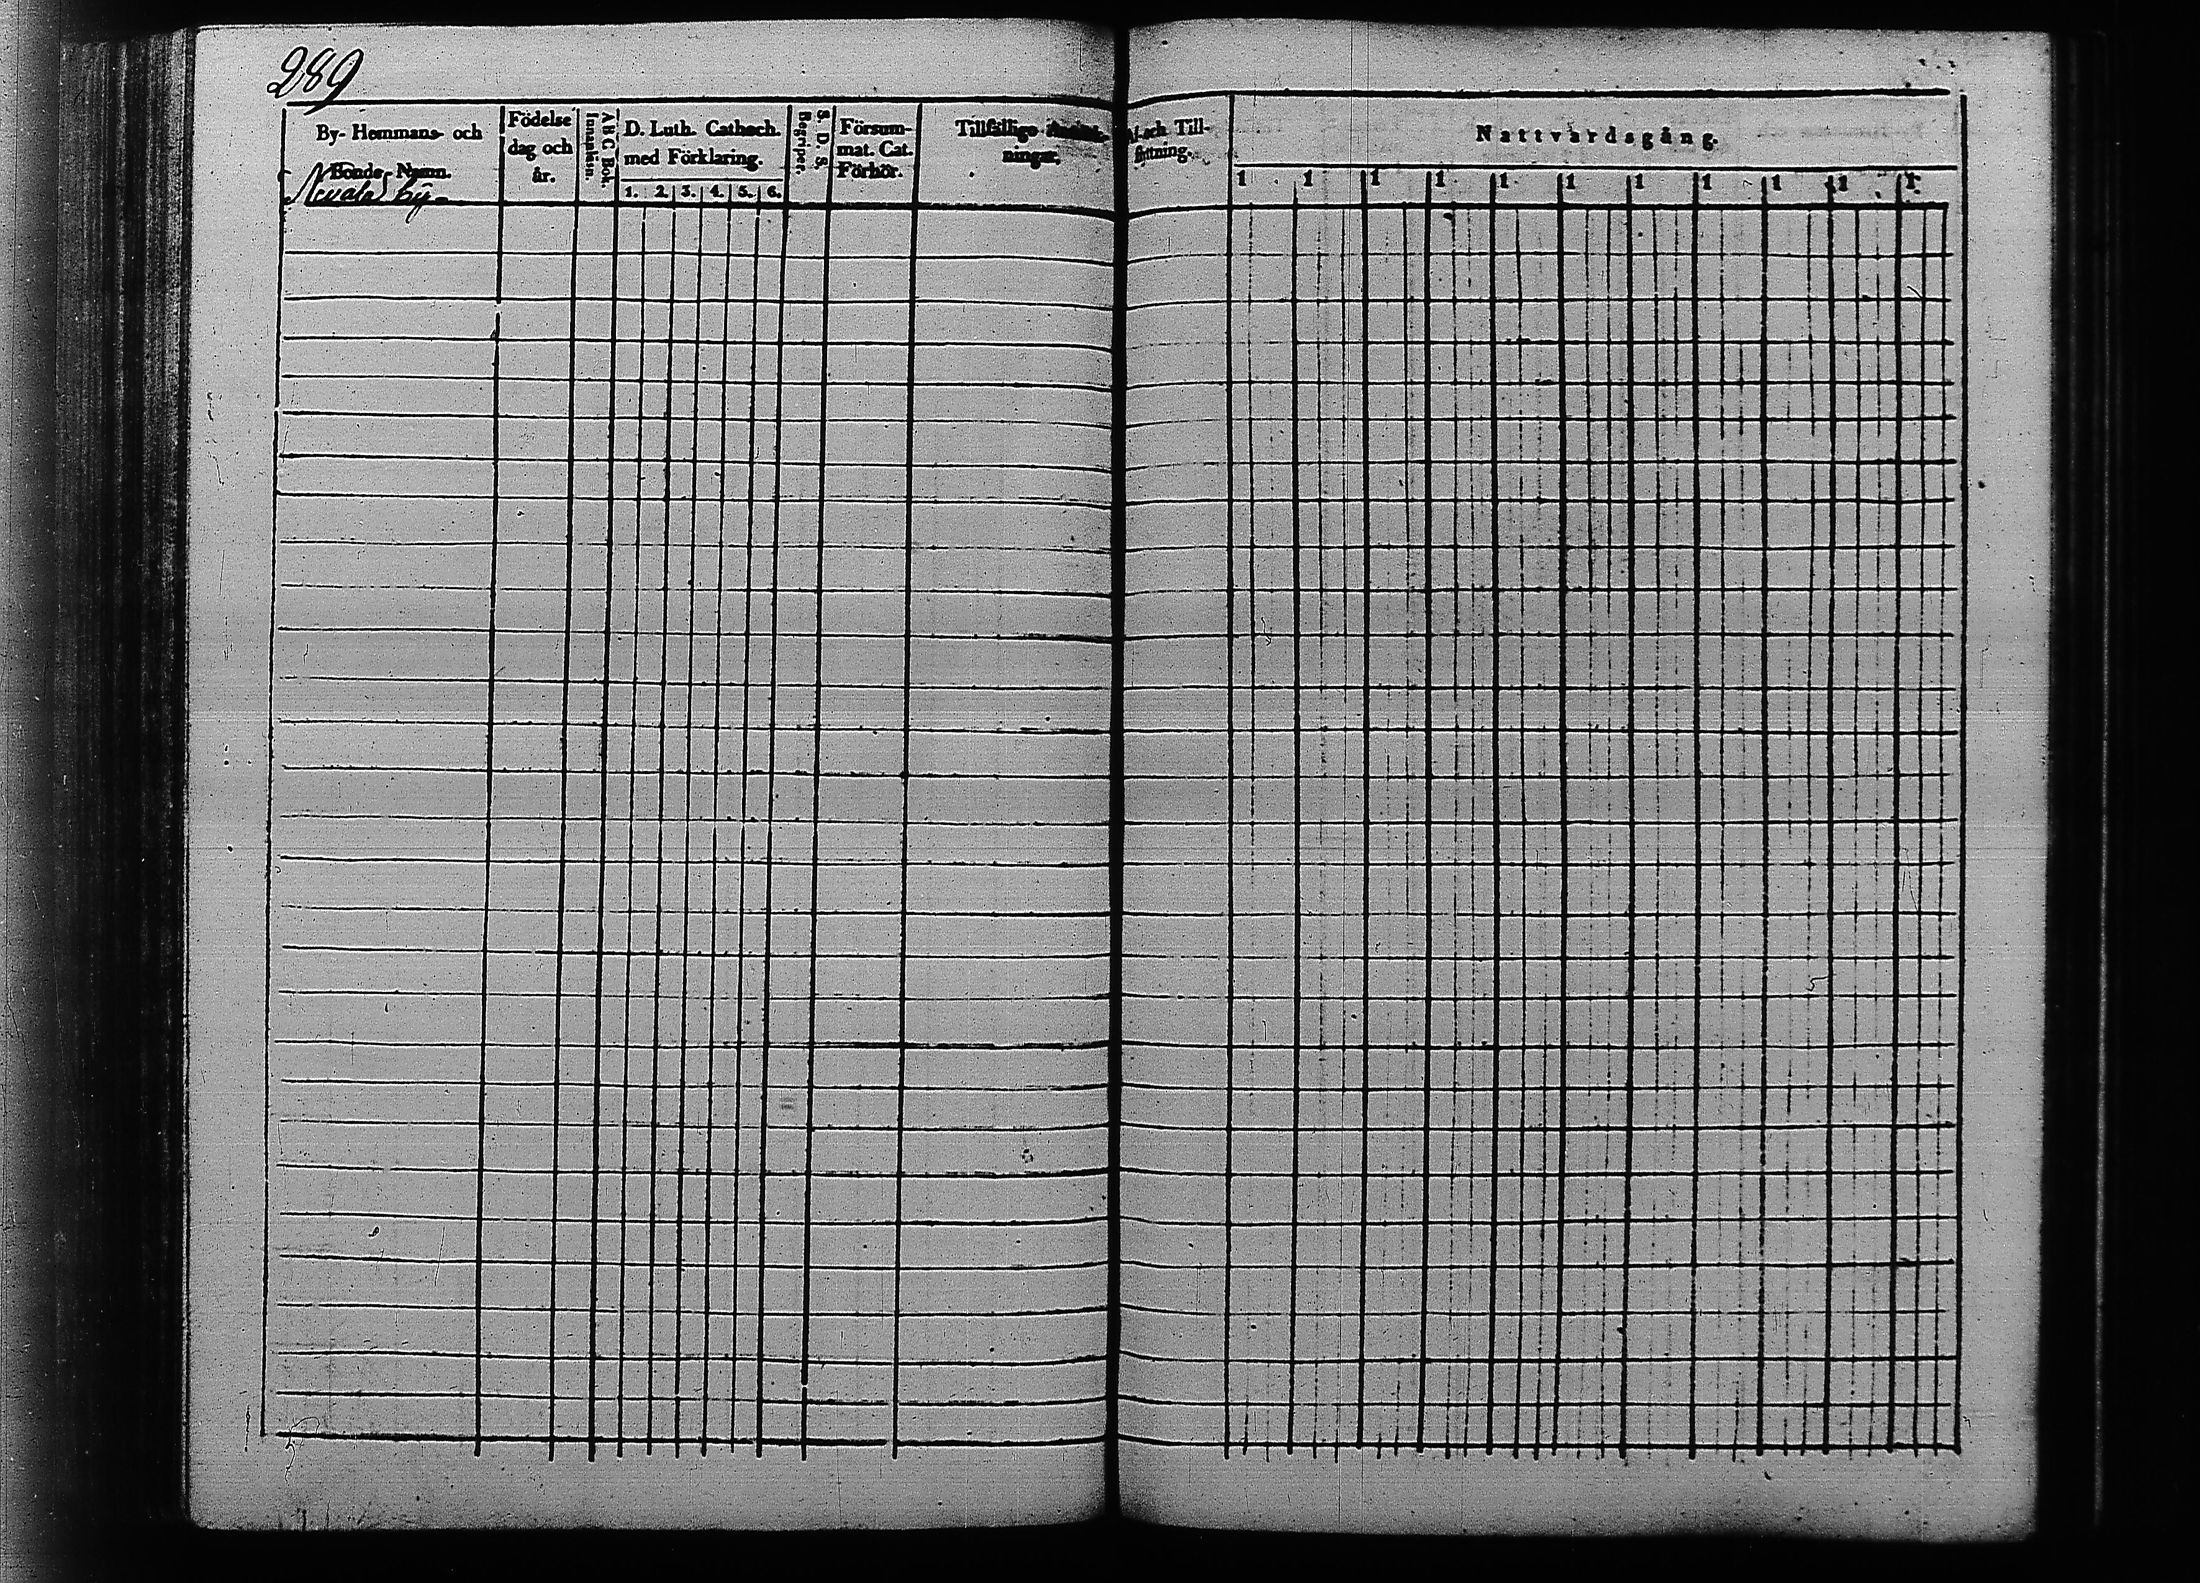 289
By- Hemmans- och
Bonde- Namn.
Nevala by
Födelse
dag och
år.
A B C Bok.
Innanläsn.
D. Luth. Cathech.
med Förklaring.
1. 2. 3. 4. 5. 6.
S. D. S.
Begriper.
Försum-
mat. Cat.
Förhör.
Tillfällige
ningar.
och Till-
Nattvardsgång.
1 1 1 1 1 1 1 1 1 1 1